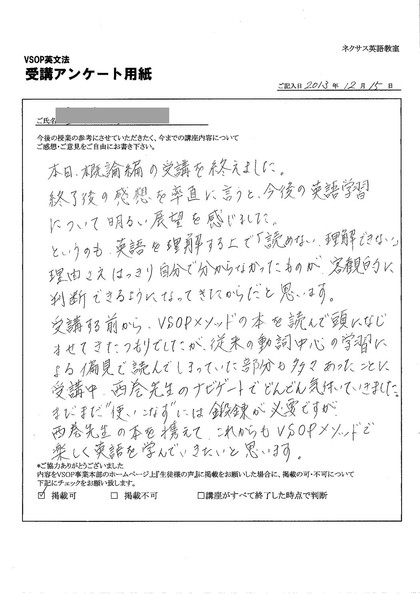 ネクサス英語教室
VSOP英文法
受講アンケート用紙
ご記入日 2013 年 12 月 15 日
ご氏名
今後の授業の参考にさせていただきたく、今までの講座内容について
ご感想・ご意見をご自由にお書き下さい。
本日、概論編の受講を終えました。
終了後の感想を率直に言うと、今後の英語学習
について明るい展望を感じました。
というのも、英語を理解する上で「読めない、理解できない」
理由さえはっきり自分で分からなかったものが、客観的に
判断できるようになってきたからだと思います。
受講する前から、VSOPメソッドの本を読んで頭になじ
ませてきたつもりでしたが、従来の動詞中心の学習に
よる偏見で読んでしまっていた部分も多々あったことに
受講中、西巻先生のナビゲートでどんどん気付いていきました。
まだまだ"使いこなす"には鍛錬が必要ですが
西巻先生の本を携えて、これからもVSOPメソッドで
楽しく英語を学んでいきたいと思います。
*ご協力ありがとうございました
内容をVSOP事業本部のホームページ上『生徒様の声』に掲載をお願いした場合に、掲載の可・不可について
下記にチェックをお願い致します。
☑ 掲載可 □ 掲載不可 □講座がすべて終了した時点で判断